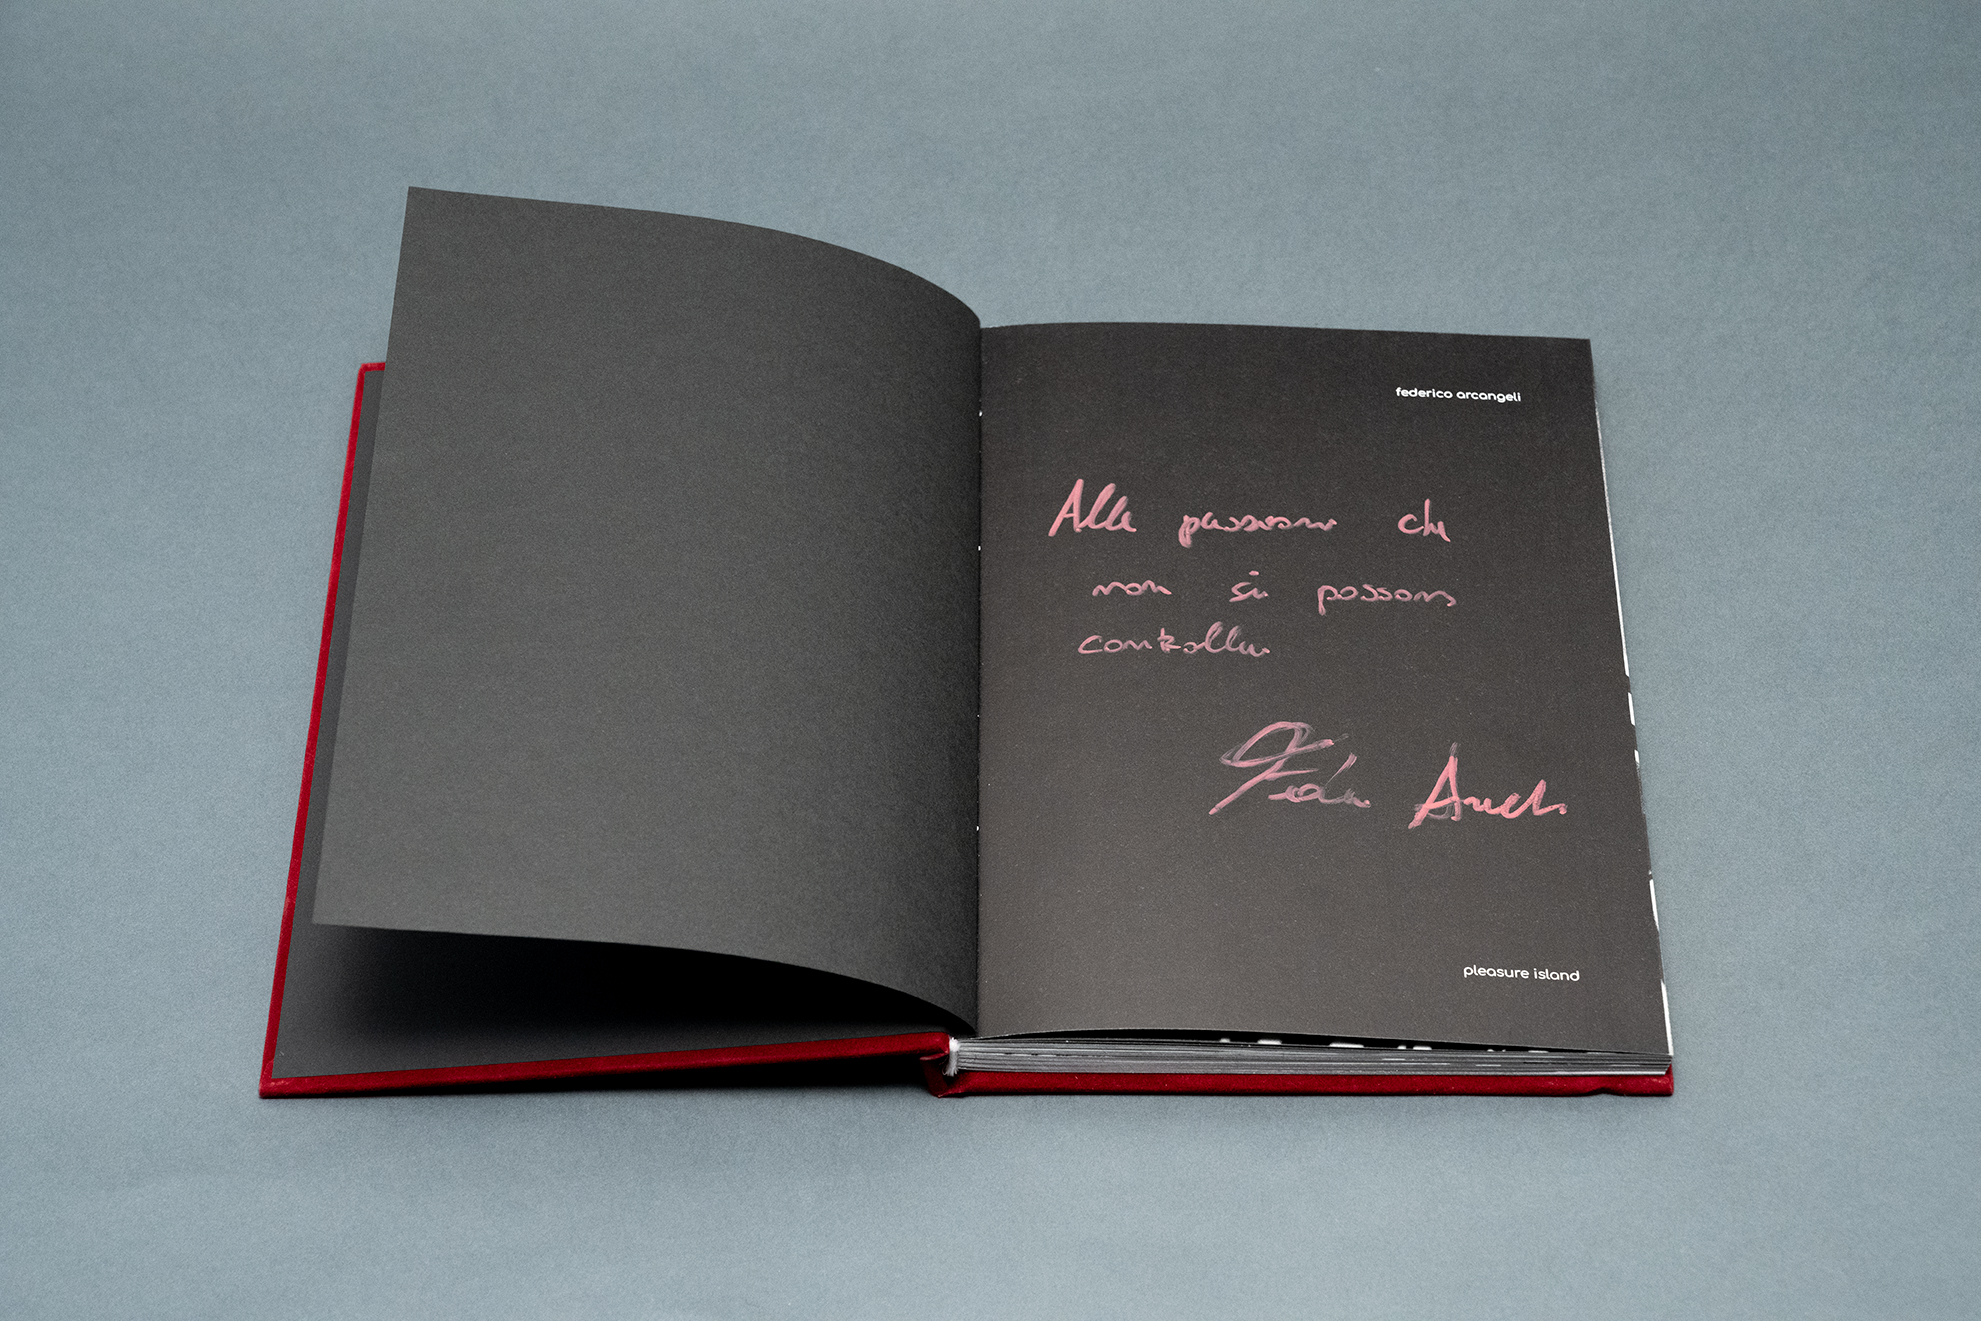 federico arcangeli
Alle passioni che
non si possono
controllare
pleasure island